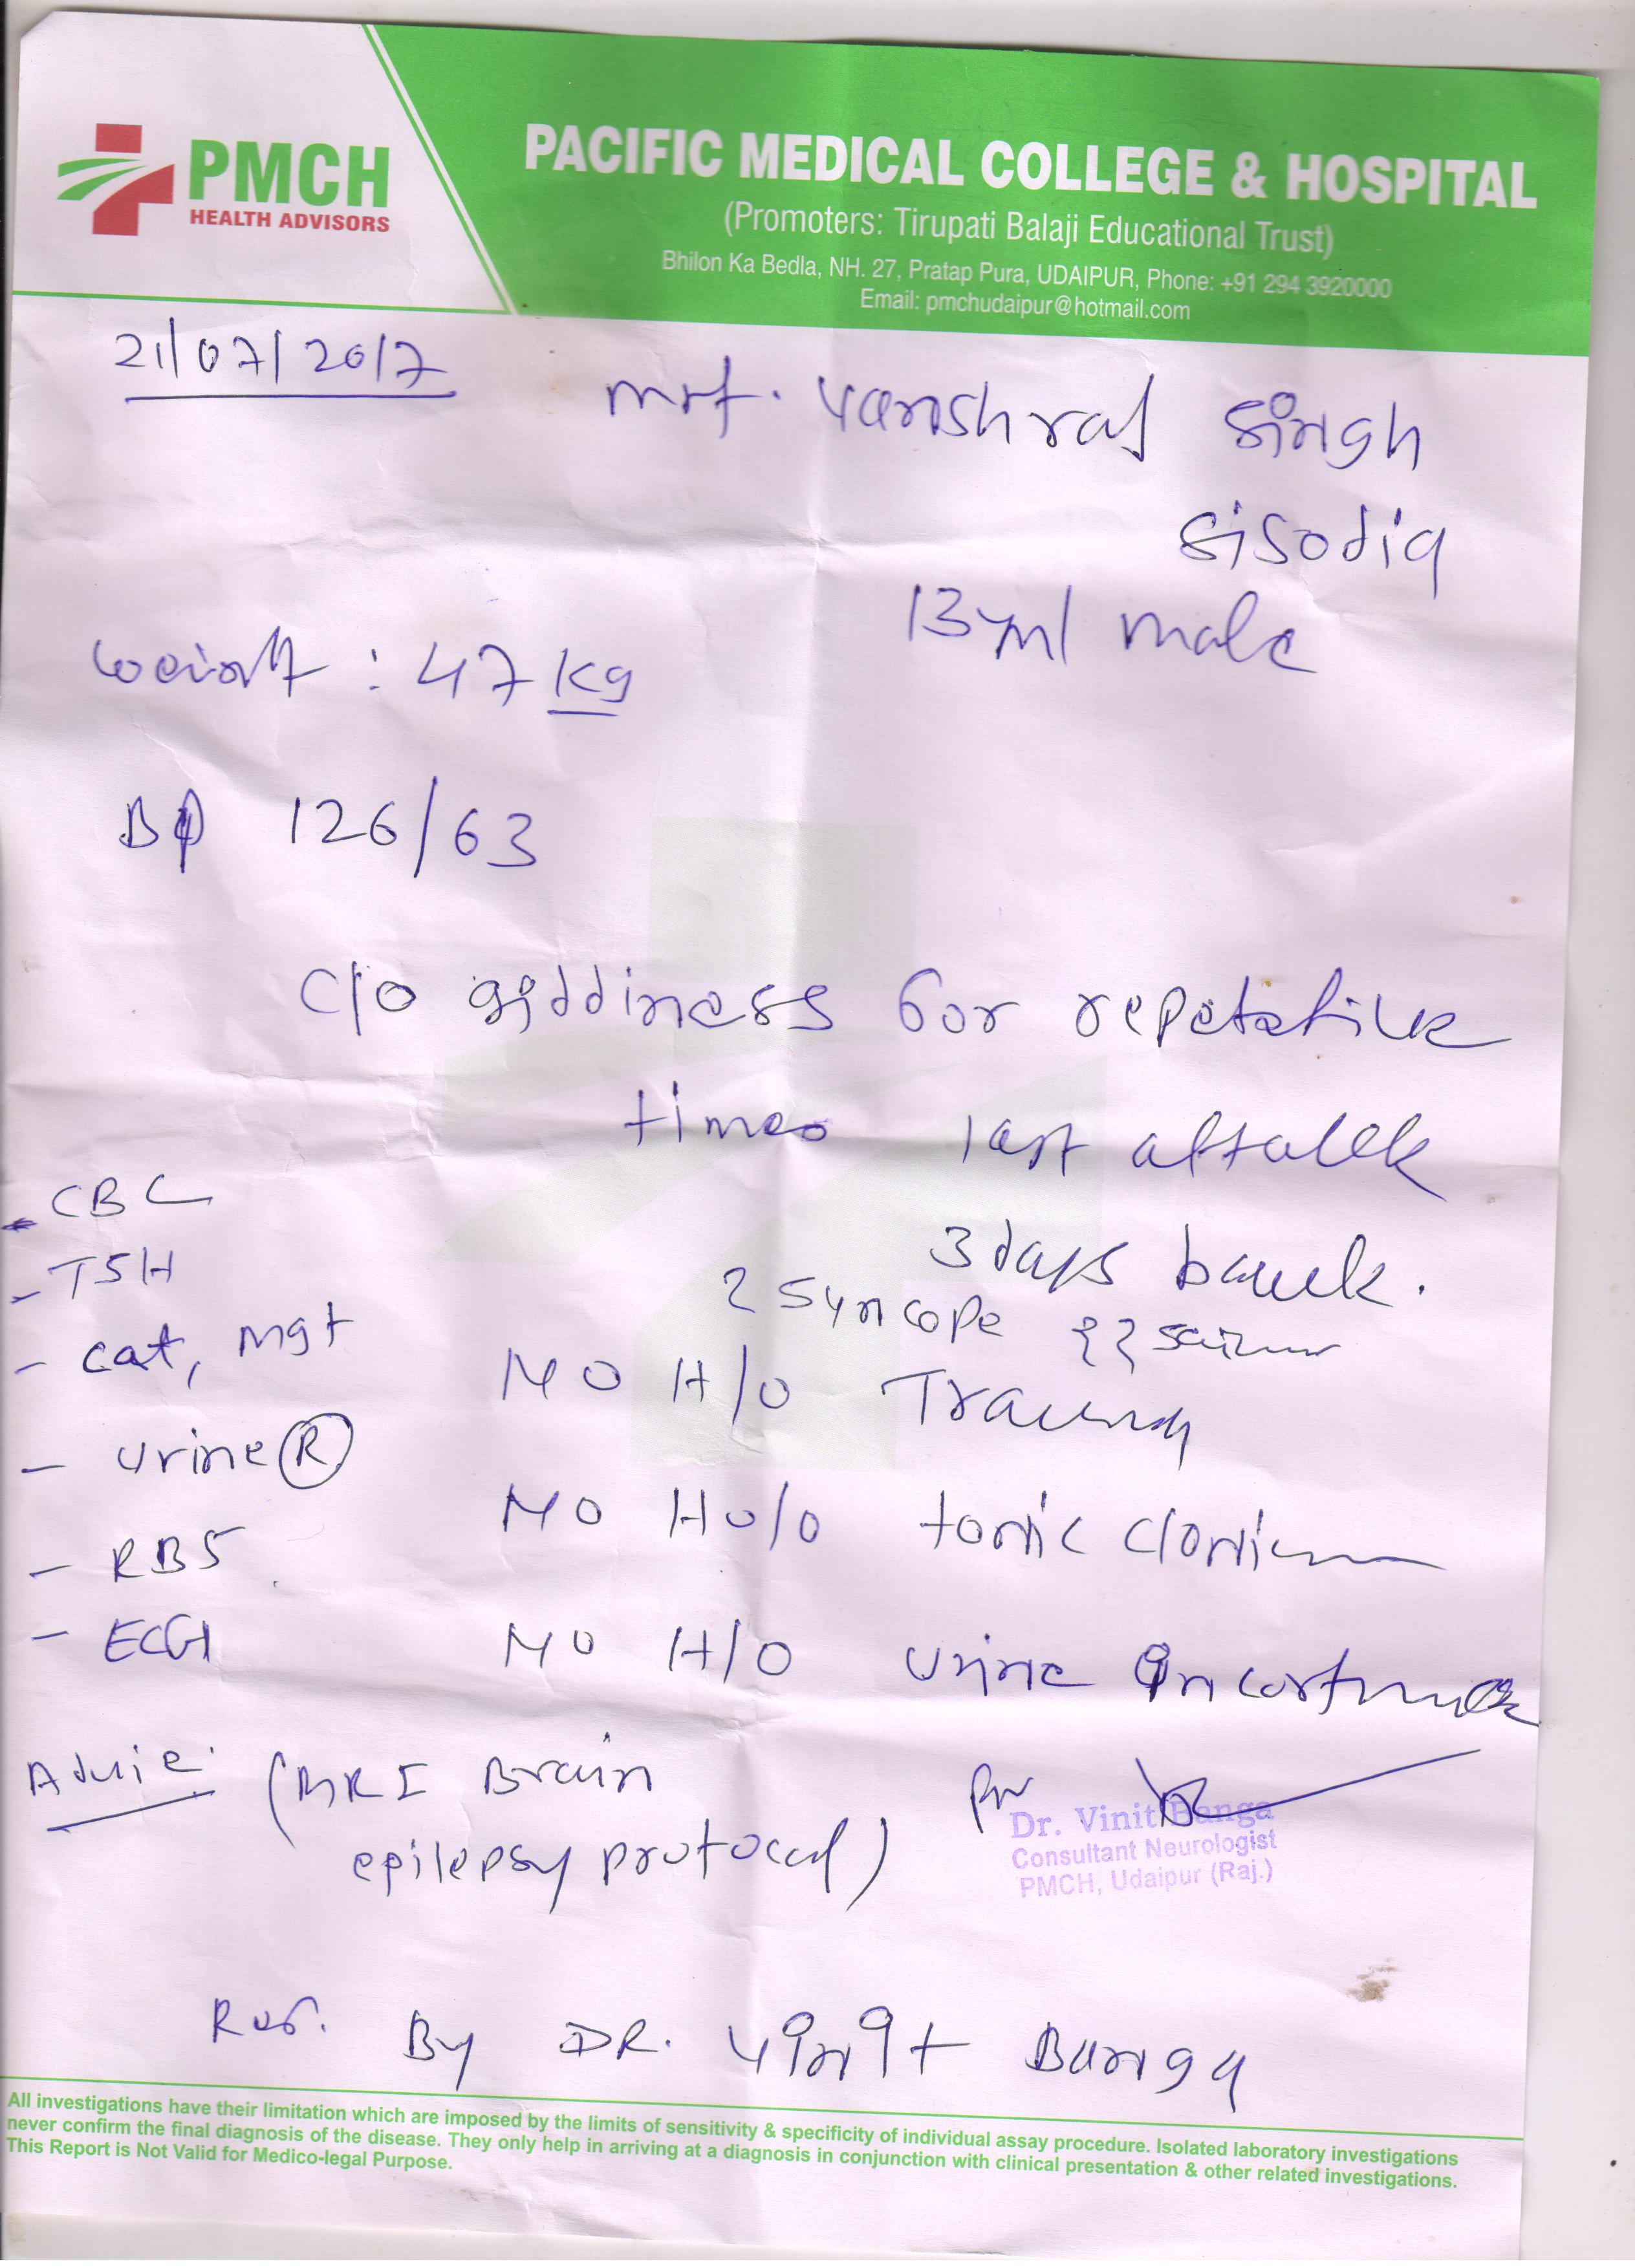 PMCH
HEALTH ADVISORS
PACIFIC MEDICAL COLLEGE & HOSPITAL
(Promoters: Tirupati Balaji Educational Trust)
Bhilon Ka Bedla, NH. 27, Pratap Pura, UDAIPUR, Phone: +91 294 3920000
Email: pmchudaipur@hotmail.com
21/07/2017
Vanshraj Singh
Sisodia
13 male
47 kg
BP 126/63
C/O giddiness for
times last
3 days
? Syncope
NO H/O Trauma
NO HO/O tonic
NO H/O urine
- CBC
- TSH
- cat, Mgt
- urine (R)
- RBS
- ECG
(MRI Brain
epilepsy protocol)
Dr. Vinit Banga
Consultant Neurologist
PMCH, Udaipur (Raj.)
By DR. Vinit Banga
All investigations have their limitation which are imposed by the limits of sensitivity & specificity of individual assay procedure. Isolated laboratory investigations
never confirm the final diagnosis of the disease. They only help in arriving at a diagnosis in conjunction with clinical presentation & other related investigations.
This Report is Not Valid for Medico-legal Purpose.